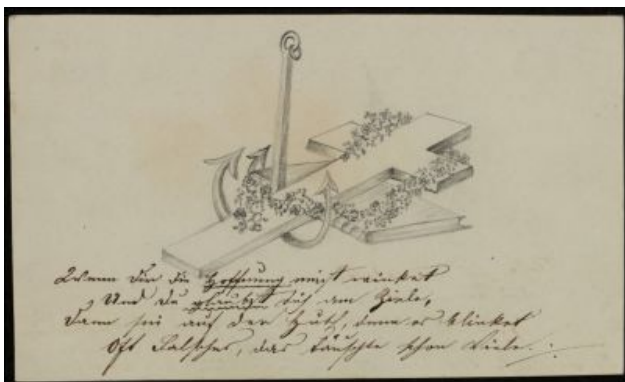 Wenn dir die Hoffnung winket
Und du glaubst dich am Ziele,
Dann sei auf der Huth, denn es blinket
Oft Falsches, das täuschte schon Viele.